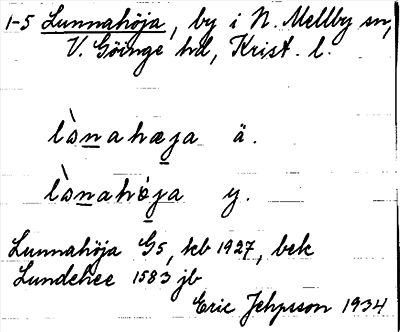 1-5 Lunnahöja, by i N. Mellby sn,
V. Göinge hd, Krist. l.
lànahæja ä.
lànahöja y.
Lunnahöja G5, kb 1927, bek
Lundehee 1583 jb
Eric Jepsson 1934